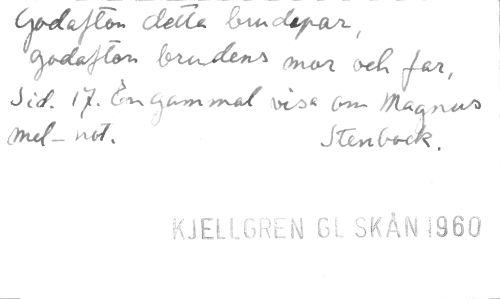 Godafton detta brudepar,
godafton brudens mor och far,
Sid. 17. En gammal visa om Magnus
mel-not. Stenbock.
KJELLGREN GL SKÅN 1960